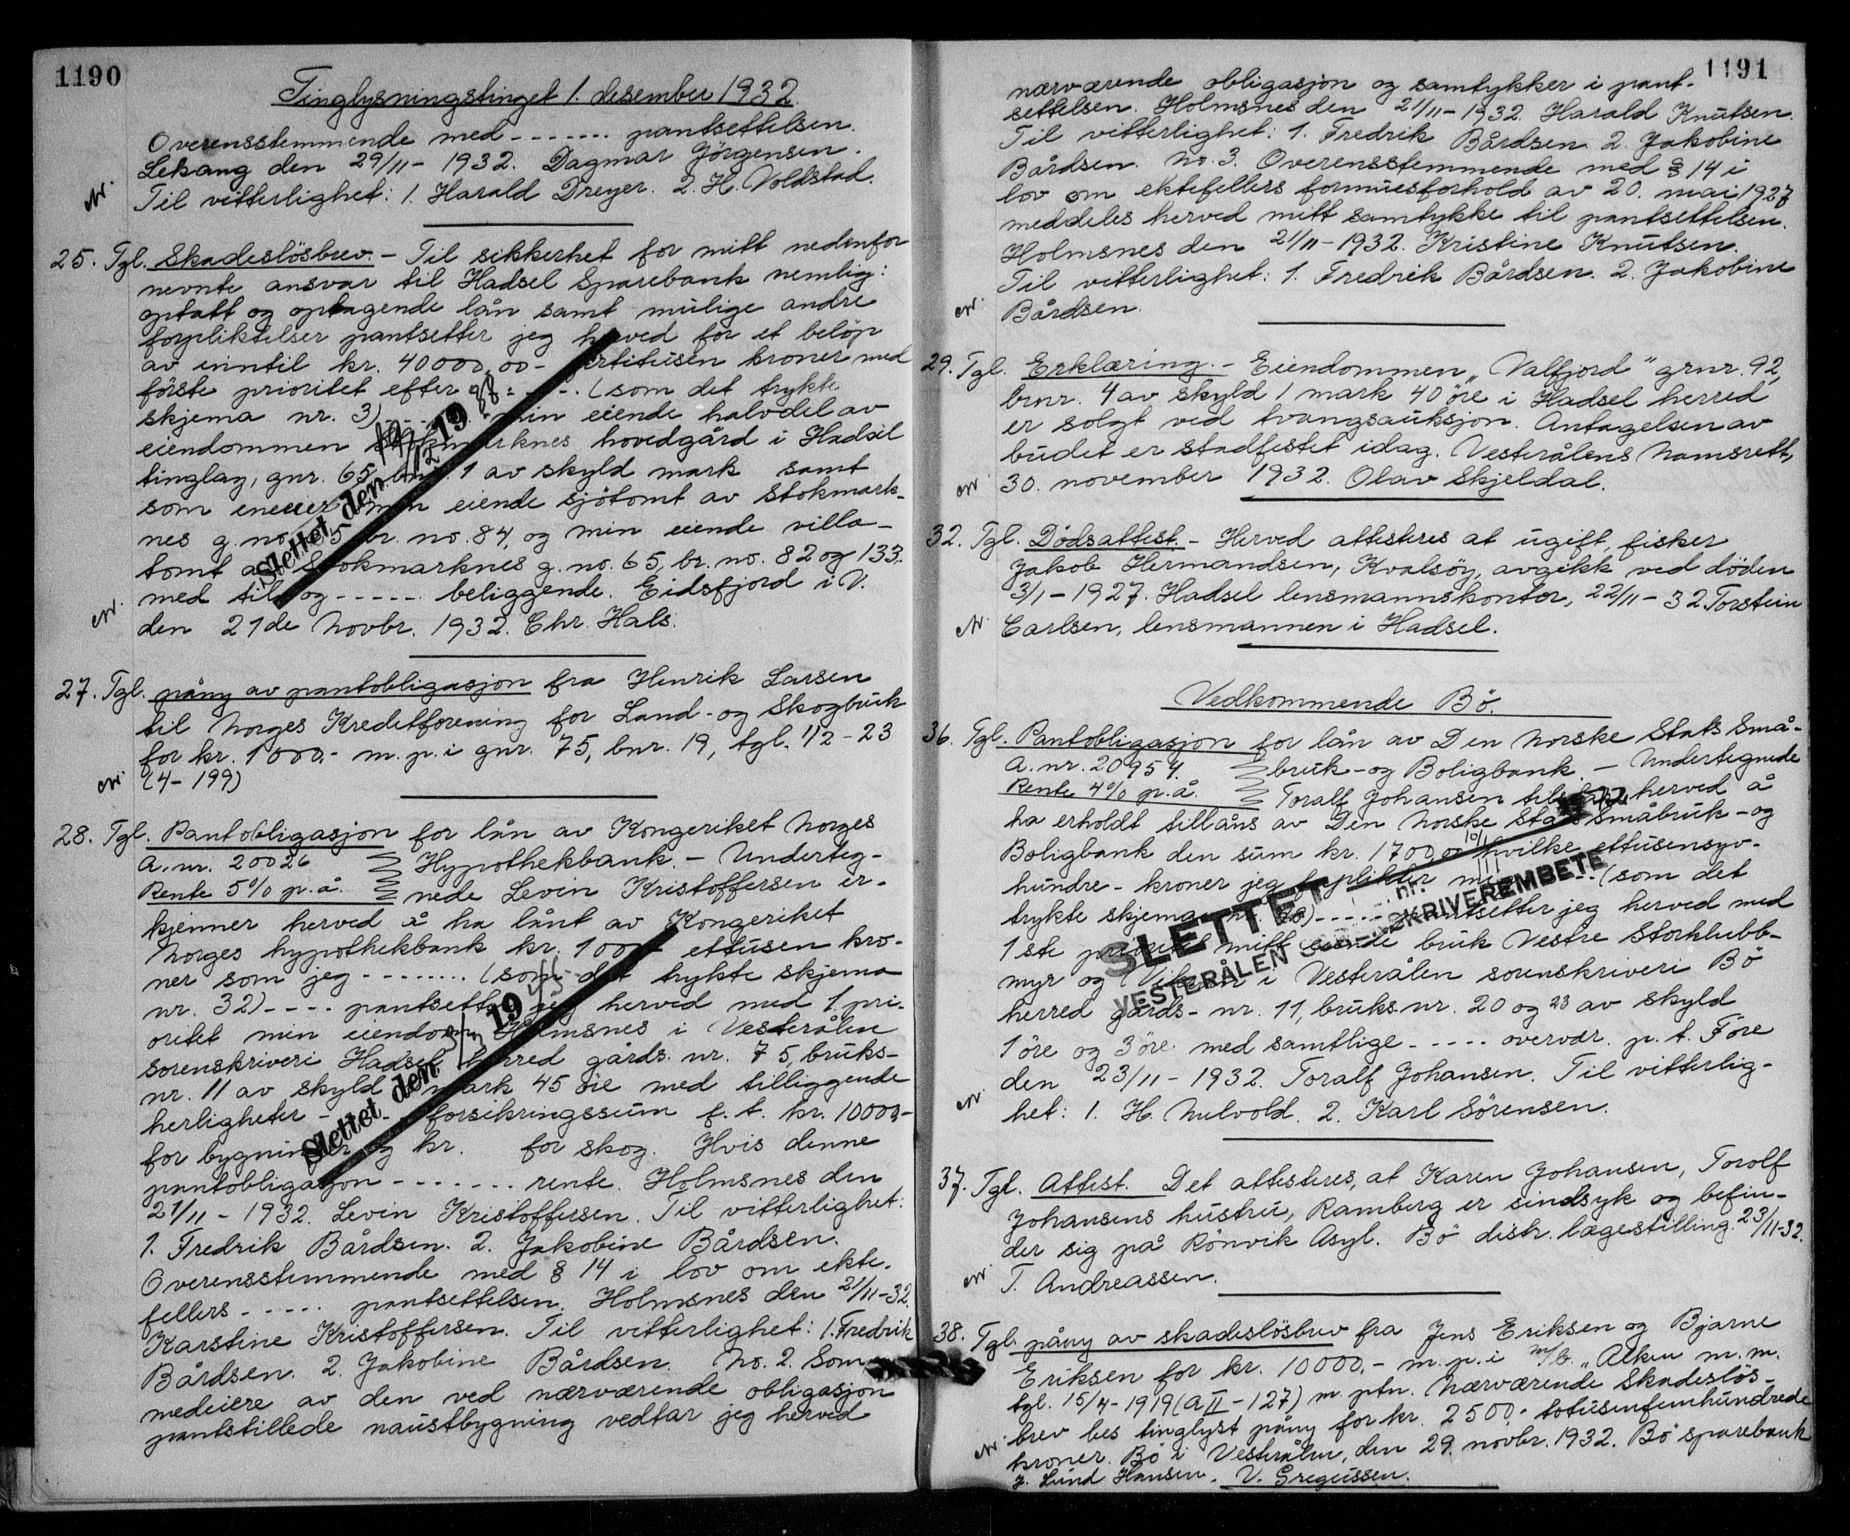 1190
Tinglysningstinget 1. desember 1932.
Overensstemmende med ------- pantsettelsen.
Leksang den 29/11 - 1932. Dagmar Jörgensen.
Til vitterlighet: 1. Harald Dreyer. 2. H. Voldstad.
25. Tgl. Skadeslösbrev. - Til sikkerhet for mitt nedenfor
nevnte ansvar til Hadsel Sparebank nemlig:
optatt og optagende lån samt mulige andre
forpliktelser pantsetter jeg herved for et belöp
av inntil kr. 40000,00 - förtitusen kroner med
förste prioritet efter ----- (som det trykte
skjema nr. 3) ----- min eiende halvdel av
eiendommen Stokmarknes hovedgård i Hadsel
tinglag, gnr. 65, bnr. 1 av skyld mark samt
som eneeier min eiende sjötomt av Stokmark-
nes g. no. 65 br. no. 84, og min eiende villa-
tomt av Stokmarknes g. no. 65, br. no. 82 og 133.
med til og ----- beliggende. Eidsfjord i V.
den 21de Novbr. 1932. Chr. Hals.
Slettet den 19 88
27. Tgl. påny av pantobligasjon fra Henrik Larsen
til Norges Kreditforening for Land- og Skogbruk
for kr. 1000,- m. p. i gnr. 75, bnr. 19, tgl. 1/2 - 23
(4-199)
28. Tgl. Pantobligasjon for lån av Kongeriket Norges
A. nr. 20026 Hypothekbank. - Underteg-
Rente 5% p. å. nede Levin Kristoffersen er-
kjenner herved å ha lånt av Kongeriket
Norges hypothekbank kr. 1000,- ettusen kro-
ner som jeg -------- (som det trykte skjema
nr. 32) ---- pantsetter jeg herved med 1. pri-
oritet min eiendom Holmsnes i Vesterålen
sorenskriveri Hadsel herred gårds. nr. 75, bruks-
nr. 11 av skyld mark 45 öre med tilliggende
herligheter - forsikringssum f. t. kr. 1000,-
for bygninger og kr. for skog. Hvis denne
pantobligasjon ------- rente. Holmsnes den
21/11 - 1932. Levin Kristoffersen. Til vitterlighet:
1. Fredrik Bårdsen. 2. Jakobine Bårdsen.
Overensstemmende med § 14 i lov om ekte-
fellers ----- pantsettelsen. Holmsnes den 21/11-32.
Karstine Kristoffersen. Til vitterlighet: 1. Fredrik
Bårdsen. 2. Jakobine Bårdsen. No. 2. Som
medeiere av den ved nærværende obligasjon
pantstillede naustbygning vedtar jeg herved
Slettet den 19 45
1191
nærværende obligasjon og samtykker i pant-
settelsen. Holmsnes den 21/11-1932. Harald Knutsen.
Til vitterlighet: 1. Fredrik Bårdsen 2. Jakobine
Bårdsen. No. 3. Overensstemmende med § 14 i
lov om ektefellers formuesforhold av 20. mai 1927
meddeles herved mitt samtykke til pantsettelsen.
Holmsnes den 21/11-1932. Kristine Knutsen.
Til vitterlighet: 1. Fredrik Bårdsen. 2. Jakobine
Bårdsen.
29. Tgl. Erklæring. - Eiendommen "Valfjord" grnr. 92,
brnr. 4 av skyld 1 mark 40 öre i Hadsel herred
er solgt ved tvangsauksjon. Antagelsen av
budet er stadfestet idag. Vesterålens Namsrett,
30. november 1932. Olav Skjeldal.
32. Tgl. Dödsattest. - Herved attesteres at ugift fisker
Jakob Hermandsen, Kvalsöy, avgikk ved döden
3/1-1927. Hadsel lensmannskontor, 22/11-32 Torstein
Carlsen, lensmannen i Hadsel.
Vedkommende Bö.
36. Tgl. Pantobligasjon for lån av Den Norske Stats Små-
A. nr. 20954. bruk- og Boligbank. - Undertegnede
Rente 4% p. å. Toralf Johansen tilstår herved å
ha erholdt tillåns av Den Norske Stats Småbruk- og
Boligbank den sum kr. 1700,00 hvilke ettusensyv-
hundre- kroner jeg forplikter mig (som det
trykte skjema nr. ) ---- pantsetter jeg herved med
1ste prioritet mitt eiende bruk Vestre Storklubb-
myr og i Vesterålen sorenskriveri Bö
herred gårds- nr. 11, bruks. nr. 20 og 23 av skyld
1 öre og 3 öre. med samtlige ----- overvær. p. t. Före
den 23/11-1932. Toralf Johansen. Til vitterlig-
het: 1. H. Nulvold. 2. Karl Sörensen.
SLETTET
nr.
VESTERÅLEN SORENSKRIVEREMBETE
37. Tgl. Attest. Det attesteres, at Karen Johansen, Torolf
Johansens hustru, Ramberg er sindsyk og befin-
der sig på Rönvik Asyl. Bö distr. lægestilling. 23/11-32.
T. Andreassen.
38. Tgl. påny av skadeslösbrev fra Jens Eriksen og Bjarne
Eriksen for kr. 10000,- m. p. i m/b. "Alken m. m.
tgl. 15/4-1919 (A II - 127) m. ptn. Nærværende Skadeslös-
brev bes tinglyst påny for kr. 2500,- totusenfemhundrede
kroner. Bö i Vesterålen, den 29. novbr. 1932. Bö sparebank
J. Lund Hansen. V. Gregussen.